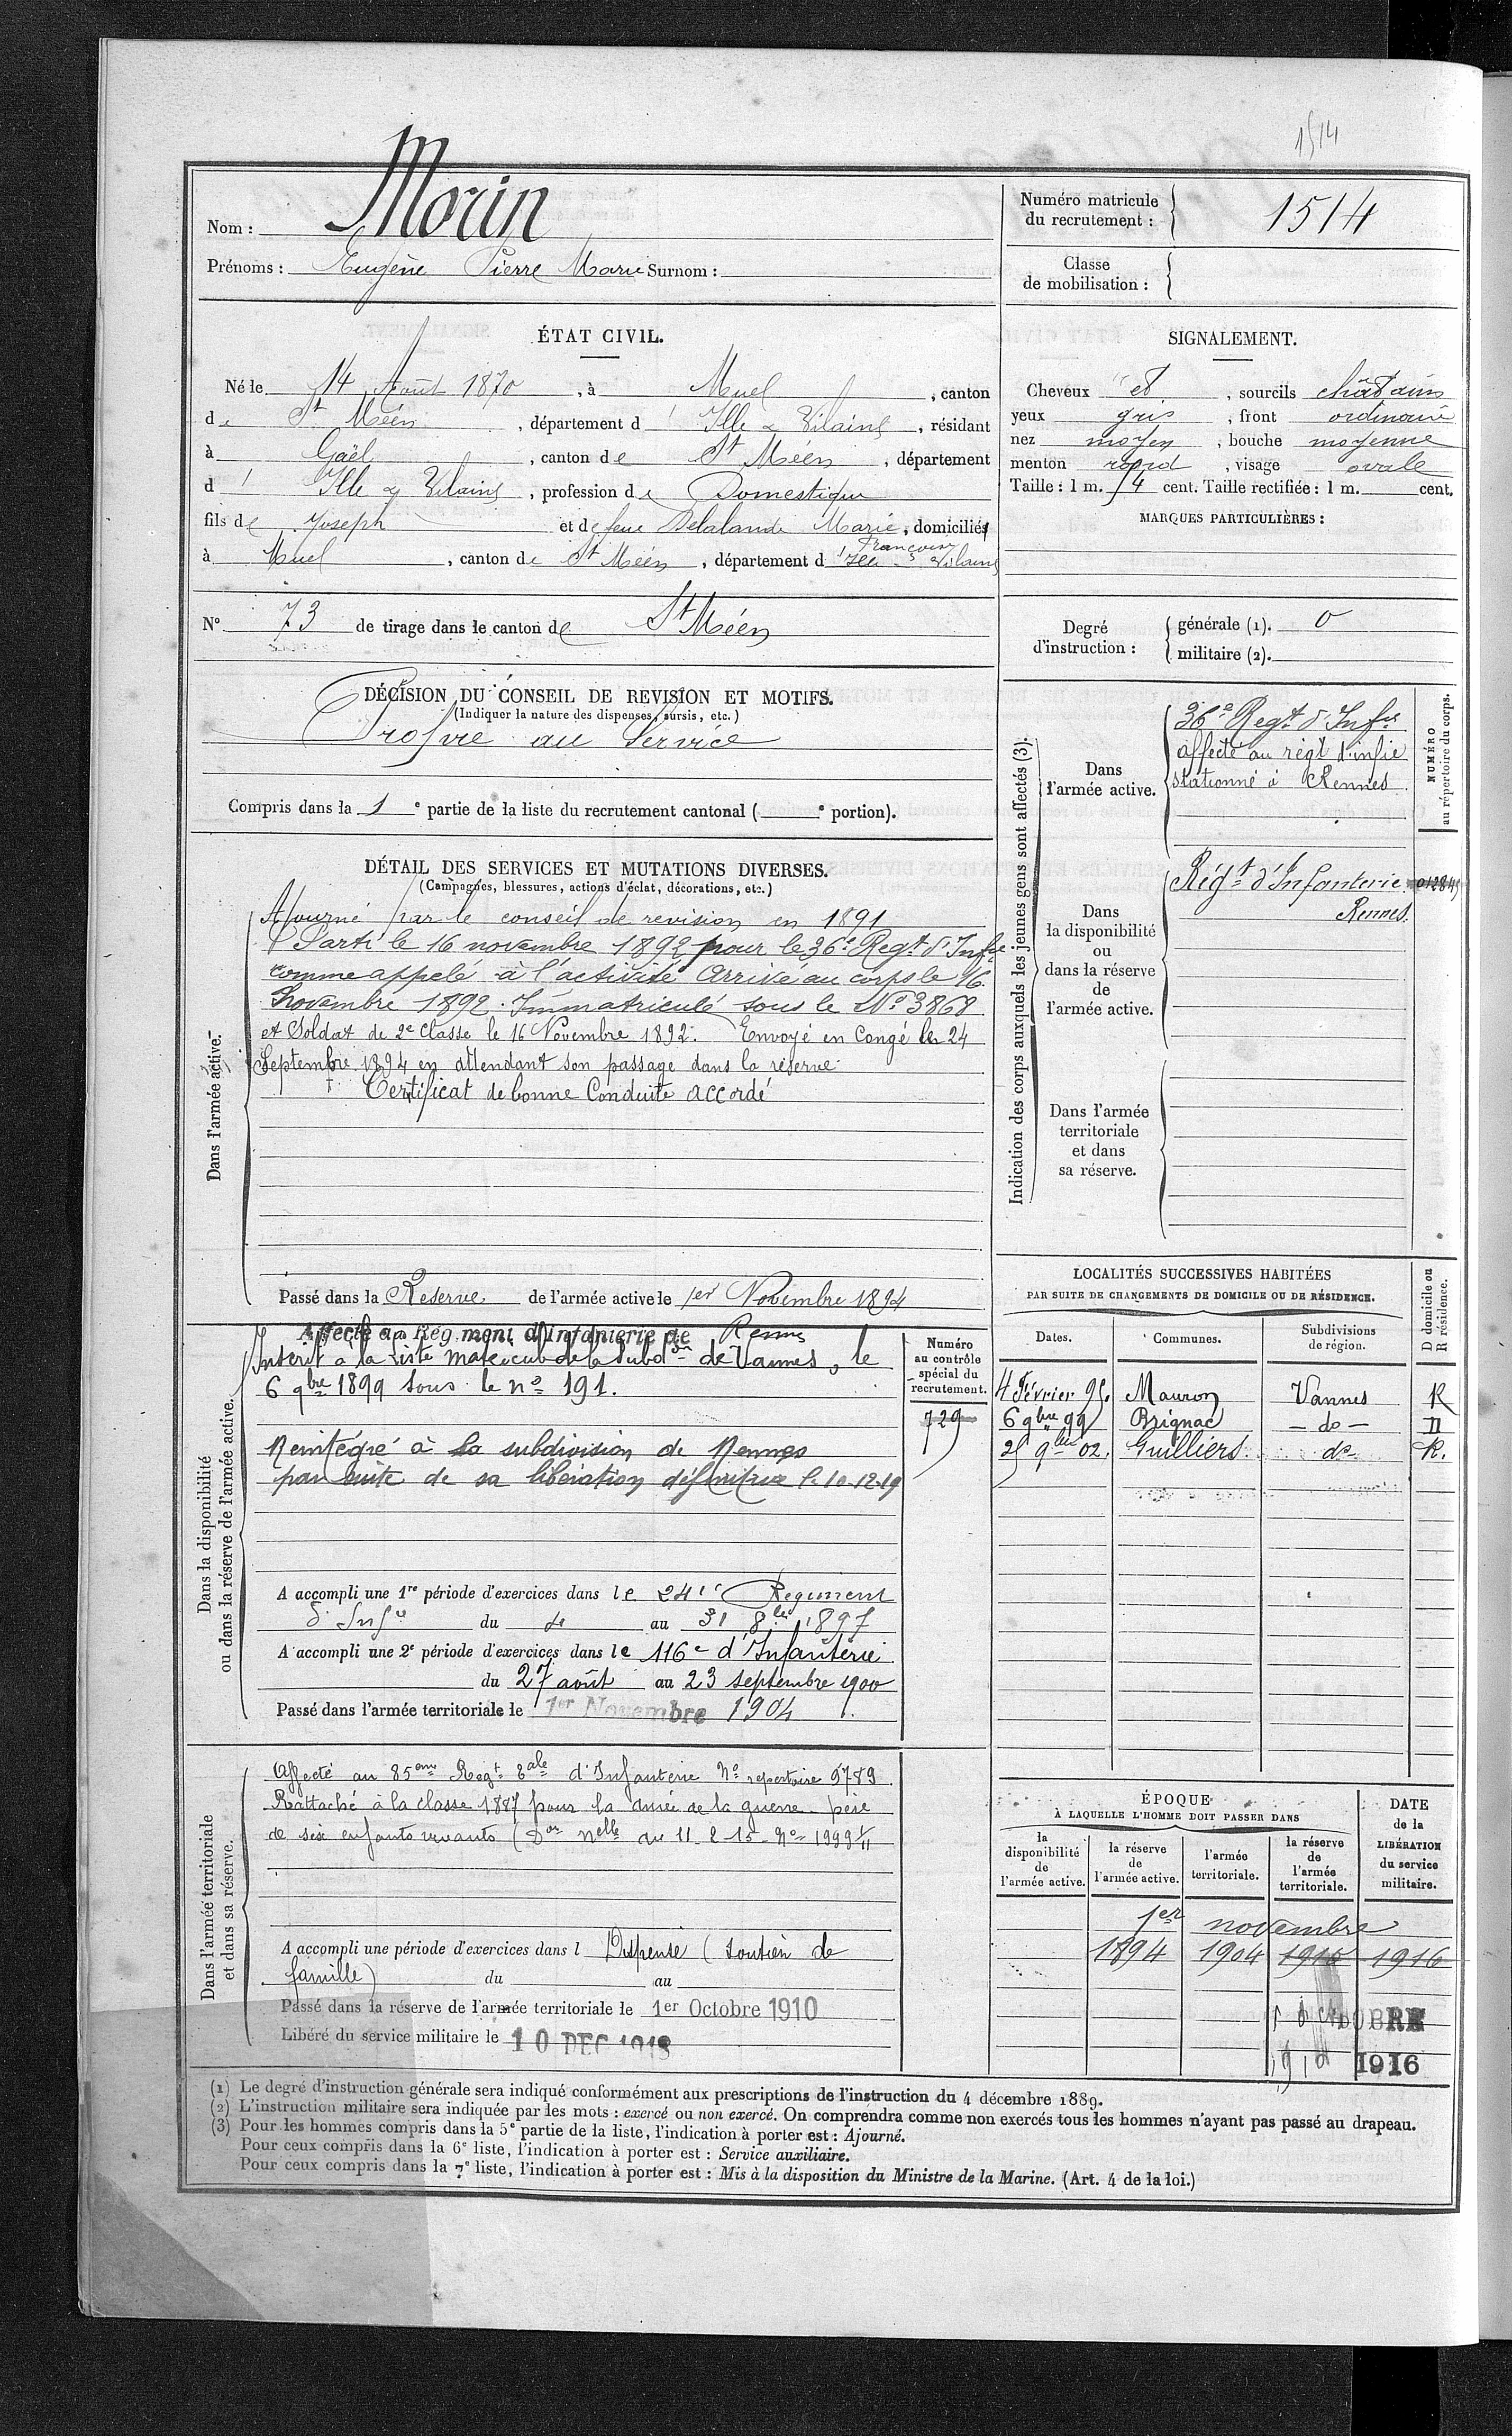 1514
Nom : Morin
Prénoms : Eugène Pierre Marie Surnom :
Numéro matricule du recrutement : 1514
Classe de mobilisation :
ÉTAT CIVIL.
Né le 14 Août 1870, à Muel, canton
de St Méen, département d'Ille & Vilaine, résidant
à Gaël, canton de St Méen, département
d'Ille & Vilaine, profession de Domestique
fils de Joseph et de feue Delalande Marie Françoise, domiciliés
à Muel, canton de St Méen, département d'Ille & Vilaine
SIGNALEMENT.
Cheveux et, sourcils châtains
yeux gris, front ordinaire
nez moyen, bouche moyenne
menton rond, visage ovale
Taille : 1 m. 74 cent. Taille rectifiée : 1 m. cent.
MARQUES PARTICULIÈRES :
N° 73 de tirage dans le canton de St Méen
Degré d'instruction :
générale (1). 0
militaire (2).
DÉCISION DU CONSEIL DE REVISION ET MOTIFS.
(Indiquer la nature des dispenses, sursis, etc.)
Propre au Service
Compris dans la 1e partie de la liste du recrutement cantonal ( e portion).
DÉTAIL DES SERVICES ET MUTATIONS DIVERSES.
(Campagnes, blessures, actions d'éclat, décorations, etc.)
Dans l'armée active.
Ajourné par le conseil de revision en 1891
Parti le 16 novembre 1892 pour le 36e Regt d'Infie
comme appelé à l'activité Arrivé au corps le 16
Novembre 1892. Immatriculé sous le No 3868
et Soldat de 2e Classe le 16 Novembre 1892. Envoyé en Congé le 24
Septembre 1894 en attendant son passage dans la réserve
Certificat de bonne Conduite accordé
Passé dans la Reserve de l'armée active le 1er Novembre 1894
Indication des corps auxquels les jeunes gens sont affectés (3).
NUMÉRO au répertoire du corps.
Dans l'armée active.
36e Regt d'Infie
affecté au régt d'infie
stationné à Rennes
Dans la disponibilité ou dans la réserve de l'armée active.
Régt d'Infanterie
Rennes.
Dans l'armée territoriale et dans sa réserve.
Dans la disponibilité ou dans la réserve de l'armée active.
Affecté au Régiment d'Infanterie de Rennes
Inscrit à la liste matricule de la Subdon de Vannes, le
6 9bre 1899 sous le no 191.
Réintégré à la subdivision de Rennes
par suite de sa libération définitive l. 10.12.19
Numéro au contrôle spécial du recrutement.
729
A accompli une 1re période d'exercices dans le 241e Regiment
d'Infie du 4 au 31 8bre 1897
A accompli une 2e période d'exercices dans le 116e d'Infanterie
du 27 août au 23 septembre 1900
Passé dans l'armée territoriale le 1er Novembre 1904
LOCALITÉS SUCCESSIVES HABITÉES
PAR SUITE DE CHANGEMENTS DE DOMICILE OU DE RÉSIDENCE.
Dates. Communes. Subdivisions de région. D domicile ou R résidence.
4 Février 95. Mauron Vannes R
6 9bre 99 Brignac - do - D
25 9bre 02. Guilliers do R.
Dans l'armée territoriale et dans sa réserve.
Affecté au 85eme Regt tale d'Infanterie No repertoire 9789
Rattaché à la classe 1887 pour la durée de la guerre père
de six enfants vivants ( nelle du 11-2-15 No 1999 1/11
A accompli une période d'exercices dans l Dispensé (soutien de
famille) du au
Passé dans la réserve de l'armée territoriale le 1er Octobre 1910
Libéré du service militaire le 10 DEC 1918
ÉPOQUE
À LAQUELLE L'HOMME DOIT PASSER DANS
la disponibilité de l'armée active.
la réserve de l'armée active.
l'armée territoriale.
la réserve de l'armée territoriale.
DATE de la LIBÉRATION du service militaire.
1er novembre
1894 1904 1910 1916
1916
(1) Le degré d'instruction générale sera indiqué conformément aux prescriptions de l'instruction du 4 décembre 1889.
(2) L'instruction militaire sera indiquée par les mots : exercé ou non exercé. On comprendra comme non exercés tous les hommes n'ayant pas passé au drapeau.
(3) Pour les hommes compris dans la 5e partie de la liste, l'indication à porter est : Ajourné.
Pour ceux compris dans la 6e liste, l'indication à porter est : Service auxiliaire.
Pour ceux compris dans la 7e liste, l'indication à porter est : Mis à la disposition du Ministre de la Marine. (Art. 4 de la loi.)